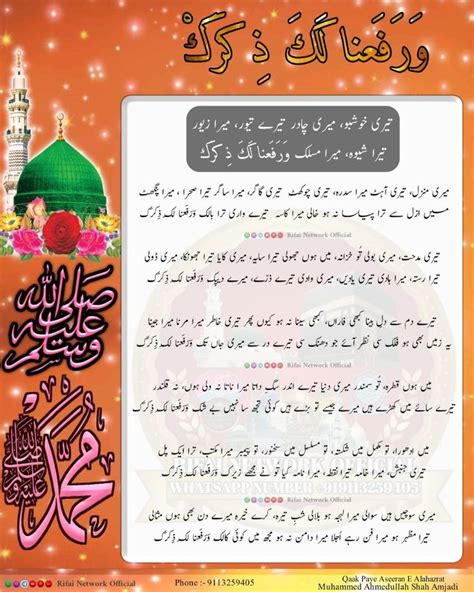 وَرَفَعنا لَكَ ذِكرَكْ
تیری خوشبو، میری چادر تیرے تیور، میرا زیور
تیرا شیوہ، میرا مسلک وَرَفَعنا لَكَ ذِكرَكْ
میری منزل، تیری آہٹ میرا سدرہ، تیری چوکھٹ تیری گاگر، میرا ساگر تیرا صحرا ، میرا پنگھٹ
میں ازل سے ترا پیاسا نہ ہو خالی میرا کاسہ تیرے واری ترا بالک وَرَفَعنا لَكَ ذِكرَكْ
Rifai Network Official
تیری مدحت، میری بولی تُو خزانہ، میں ہوں جھولی تیرا سایہ، میری کایا تیرا جھونکا، میری ڈولی
تیرا رستہ، میرا ہادی تیری یادیں، میری وادی تیرے ذرّے، میرے دیپک وَرَفَعنا لَكَ ذِكرَكْ
Rifai Network Official
تیرے دم سے دلِ بینا کبھی فاراں، کبھی سینا نہ ہو کیوں پھر تیری خاطر میرا مرنا میرا جینا
یہ زمیں بھی ہو فلک سی نظر آئے جو دھنک سی تیرے در سے میری جاں تک وَرَفَعنا لَكَ ذِكرَكْ
Rifai Network Official
میں ہوں قطرہ، تُو سمندر میری دنیا تیرے اندر سگِ داتا میرا ناتا نہ ولی ہوں، نہ قلندر
تیرے سائے میں کھڑے ہیں میرے جیسے تو بڑے ہیں کوئی تجھ سا نہیں بے شک وَرَفَعنا لَكَ ذِكرَكْ
میں ادھورا، تو مکمل میں شکستہ، تو مسلسل میں سخنور، تو پیمبر میرا مکتب، ترا ایک پل
تیری جنبش، میرا خامہ تیرا نقطہ، میرا نامہ کیا تُو نے مجھے زیرک وَرَفَعنا لَكَ ذِكرَكْ
WHATSAPP NUMBER +919113259405
میری سوچیں ہیں سوالی میرا لہجہ ہو بلالی شبِ تیرہ، کرے خیرہ میرے دن بھی ہوں مثالی
تیرا مظہر ہو میرا فن رہے اُجلا میرا دامن نہ ہو مجھ میں کوئی کالک وَرَفَعنا لَكَ ذِكرَكْ
صلى الله
عليه
وسلم
محمد
Rifai Network Official
Phone :- 9113259405
Qaak Paye Aseeran E Alahazrat
Muhammed Ahmedullah Shah Amjadi